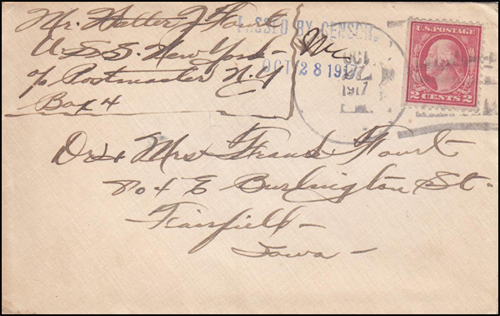 Mr. Walter J Hoart
U.S.S. New York
c/o Postmaster N.Y
Box 4
PASSED BY CENSOR.
OCT 28 1917
OCT
1917
U.S. POSTAGE
2 CENTS 2
Dr & Mrs Frank
804 E Burlington St.
Fairfield
Iowa